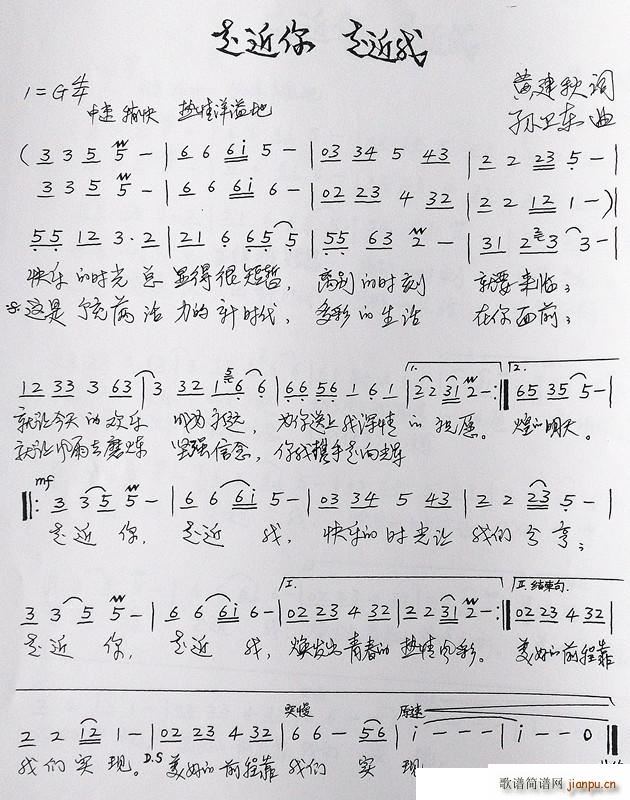 走近你 走近我
1=G 4/4
黄建秋词
中速 稍快 热情洋溢地
孙卫东曲
(3 3 5 5 - | 6 6 6i 5 - | 03 34 5 43 | 2 2 23 5 - |
3 3 5 5 - | 6 6 6i 6 - | 02 23 4 32 | 2 2 12 1 - )|
55 12 3· 2 | 21 6 65 5 | 55 63 2 - | 31 23 3 - |
快乐的时光总显得很短暂, 离别的时刻 就要来临;
这是个充满活力的新时代, 多彩的生活 在你面前;
12 33 3 63 | 3 32 1 6 6 | 66 56 1 61 | 1. 22 31 2 - :| 2. 65 35 5 - |
就让今天的欢乐 成为永远, 为你送上我深情的祝愿。 煌的明天。
就让风雨去磨炼 坚强信念, 你我携手走向辉
mf
|: 3 3 5 5 - | 6 6 6i 5 - | 03 34 5 43 | 2 2 23 5 - |
走近你, 走近我, 快乐的时光让我们分享;
I. II. 结束句.
3 3 5 5 - | 6 6 6i 6 - | 02 23 4 32 | 2 2 31 2 - :| 02 23 4 32 |
走近你, 走近我, 焕发出青春的热情风彩。 美好的前程靠
突慢 原速
2 2 12 1 - | 02 23 4 32 | 6 6 - 56 | i - - - | i - - 0 ||
我们实现。 D.S 美好的前程靠我们 实现
歌谱简谱网
jianpu.cn